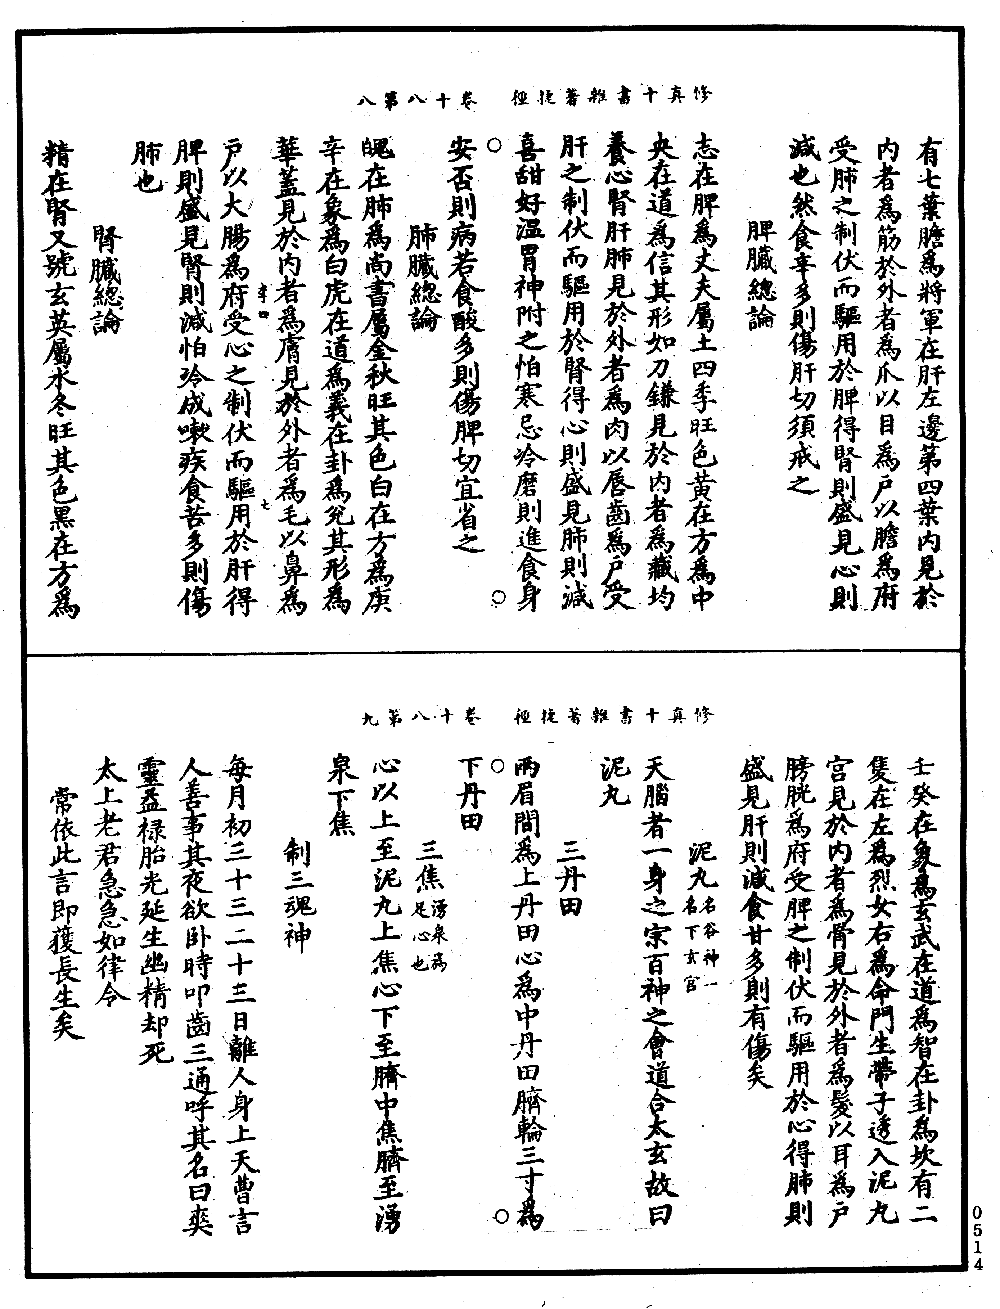 修真十書雜著捷徑　卷十八第八
有七葉膽為將軍在肝左邊第四葉內見於
內者為筋於外者為爪以目為戶以膽為府
受肺之制伏而驅用於脾得腎則盛見心則
減也然食辛多則傷肝切須戒之
脾臟總論
志在脾為丈夫屬土四季旺色黃在方為中
央在道為信其形如刀鎌見於內者為藏均
養心腎肝肺見於外者為肉以唇齒為戶受
肝之制伏而驅用於腎得心則盛見肺則減
喜甜好溫胃神附之怕寒忌冷磨則進食身
安否則病若食酸多則傷脾切宜省之
肺臟總論
魄在肺為尚書屬金秋旺其色白在方為庚
辛在象為白虎在道為義在卦為兌其形為
華蓋見於內者為膚見於外者為毛以鼻為
戶以大腸為府受心之制伏而驅用於肝得
脾則盛見腎則減怕冷成嗽疾食苦多則傷
肺也
腎臟總論
精在腎又號玄英屬水冬旺其色黑在方為
修真十書雜著捷徑　卷十八第九
壬癸在象為玄武在道為智在卦為坎有二
隻在左為烈女右為命門生帶子透入泥丸
宮見於內者為骨見於外者為髮以耳為戶
膀胱為府受脾之制伏而驅用於心得肺則
盛見肝則減食甘多則有傷矣
泥丸名谷神一名下玄宮
天腦者一身之宗百神之會道合太玄故曰
泥丸
三丹田
兩眉間為上丹田心為中丹田臍輪三寸為
下丹田
三焦湧泉為足心也
心以上至泥丸上焦心下至臍中焦臍至湧
泉下焦
制三魂神
每月初三十三二十三日離人身上天曹言
人善事其夜欲臥時叩齒三通呼其名曰爽
靈益祿胎光延生幽精却死
太上老君急急如律令
常依此言即獲長生矣
0514